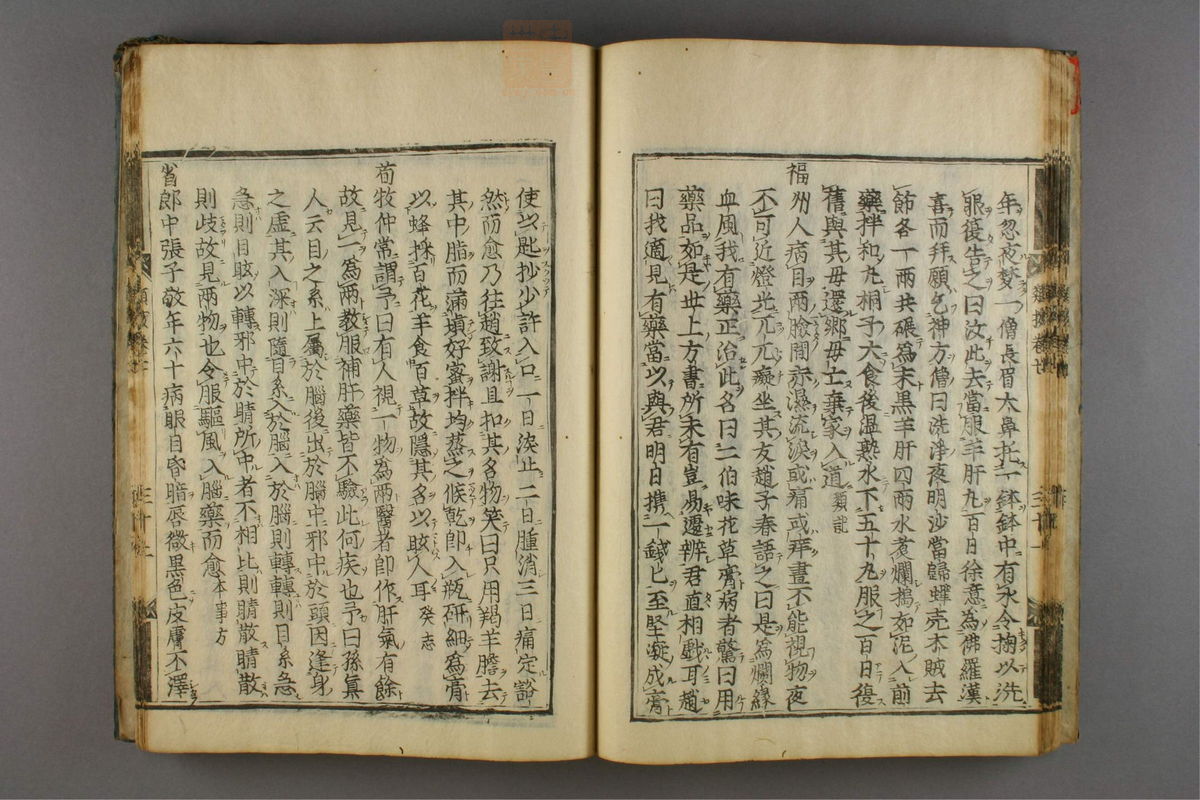 年忽夜梦一僧長眉大鼻托一鉢鉢中有水令掬以洗
眼復告之曰汝此去當服羊肝丸百日徐意為佛羅漢
喜而拜願乞神方僧曰洗淨夜明沙當歸蟬壳木賊去
節各一兩共碾為末黒羊肝四兩水煮爛搗如泥入前
藥拌和丸桐子大食後温熟水下五十丸服之百日復
舊與其母還鄉母亡棄家入道類説
福州人病目兩瞼間赤濕流淚或痛或痒晝不能視物夜
不可近燈光兀兀癡坐其友趙子春語之曰是為爛緣
血風我有藥正治此名曰二伯味花草膏病者驚曰用
藥品如是世上方書所未有豈易遽辨君直相戲耳趙
曰我適見有藥當以與君明日携一錢匕至堅凝成膏
使以匙抄少許入口一日淚止二日腫消三日痛定豁
然而愈乃往趙致謝且扣其名物笑曰只用羯羊膽去
其中脂而滿填好蜜拌均蒸之候乾即入瓶研細為膏
以蜂採百花羊食百草故隱其名以眩人耳癸志
荀牧仲常謂予曰有人視一物為兩醫者即作肝氣有餘
故見一為兩教服補肝藥皆不驗此何疾也予曰孫真
人云目之系上屬於腦後出於腦中邪中於頭因逢身
之虛其入深則隨目系入於腦入於腦則轉轉則目系急
急則目眩以轉邪中於睛所中者不相比則睛散睛散
則歧故見兩物也令服驅風入腦藥而愈本事方
省郎中張子敬年六十病眼目昏暗唇微黒色皮膚不澤